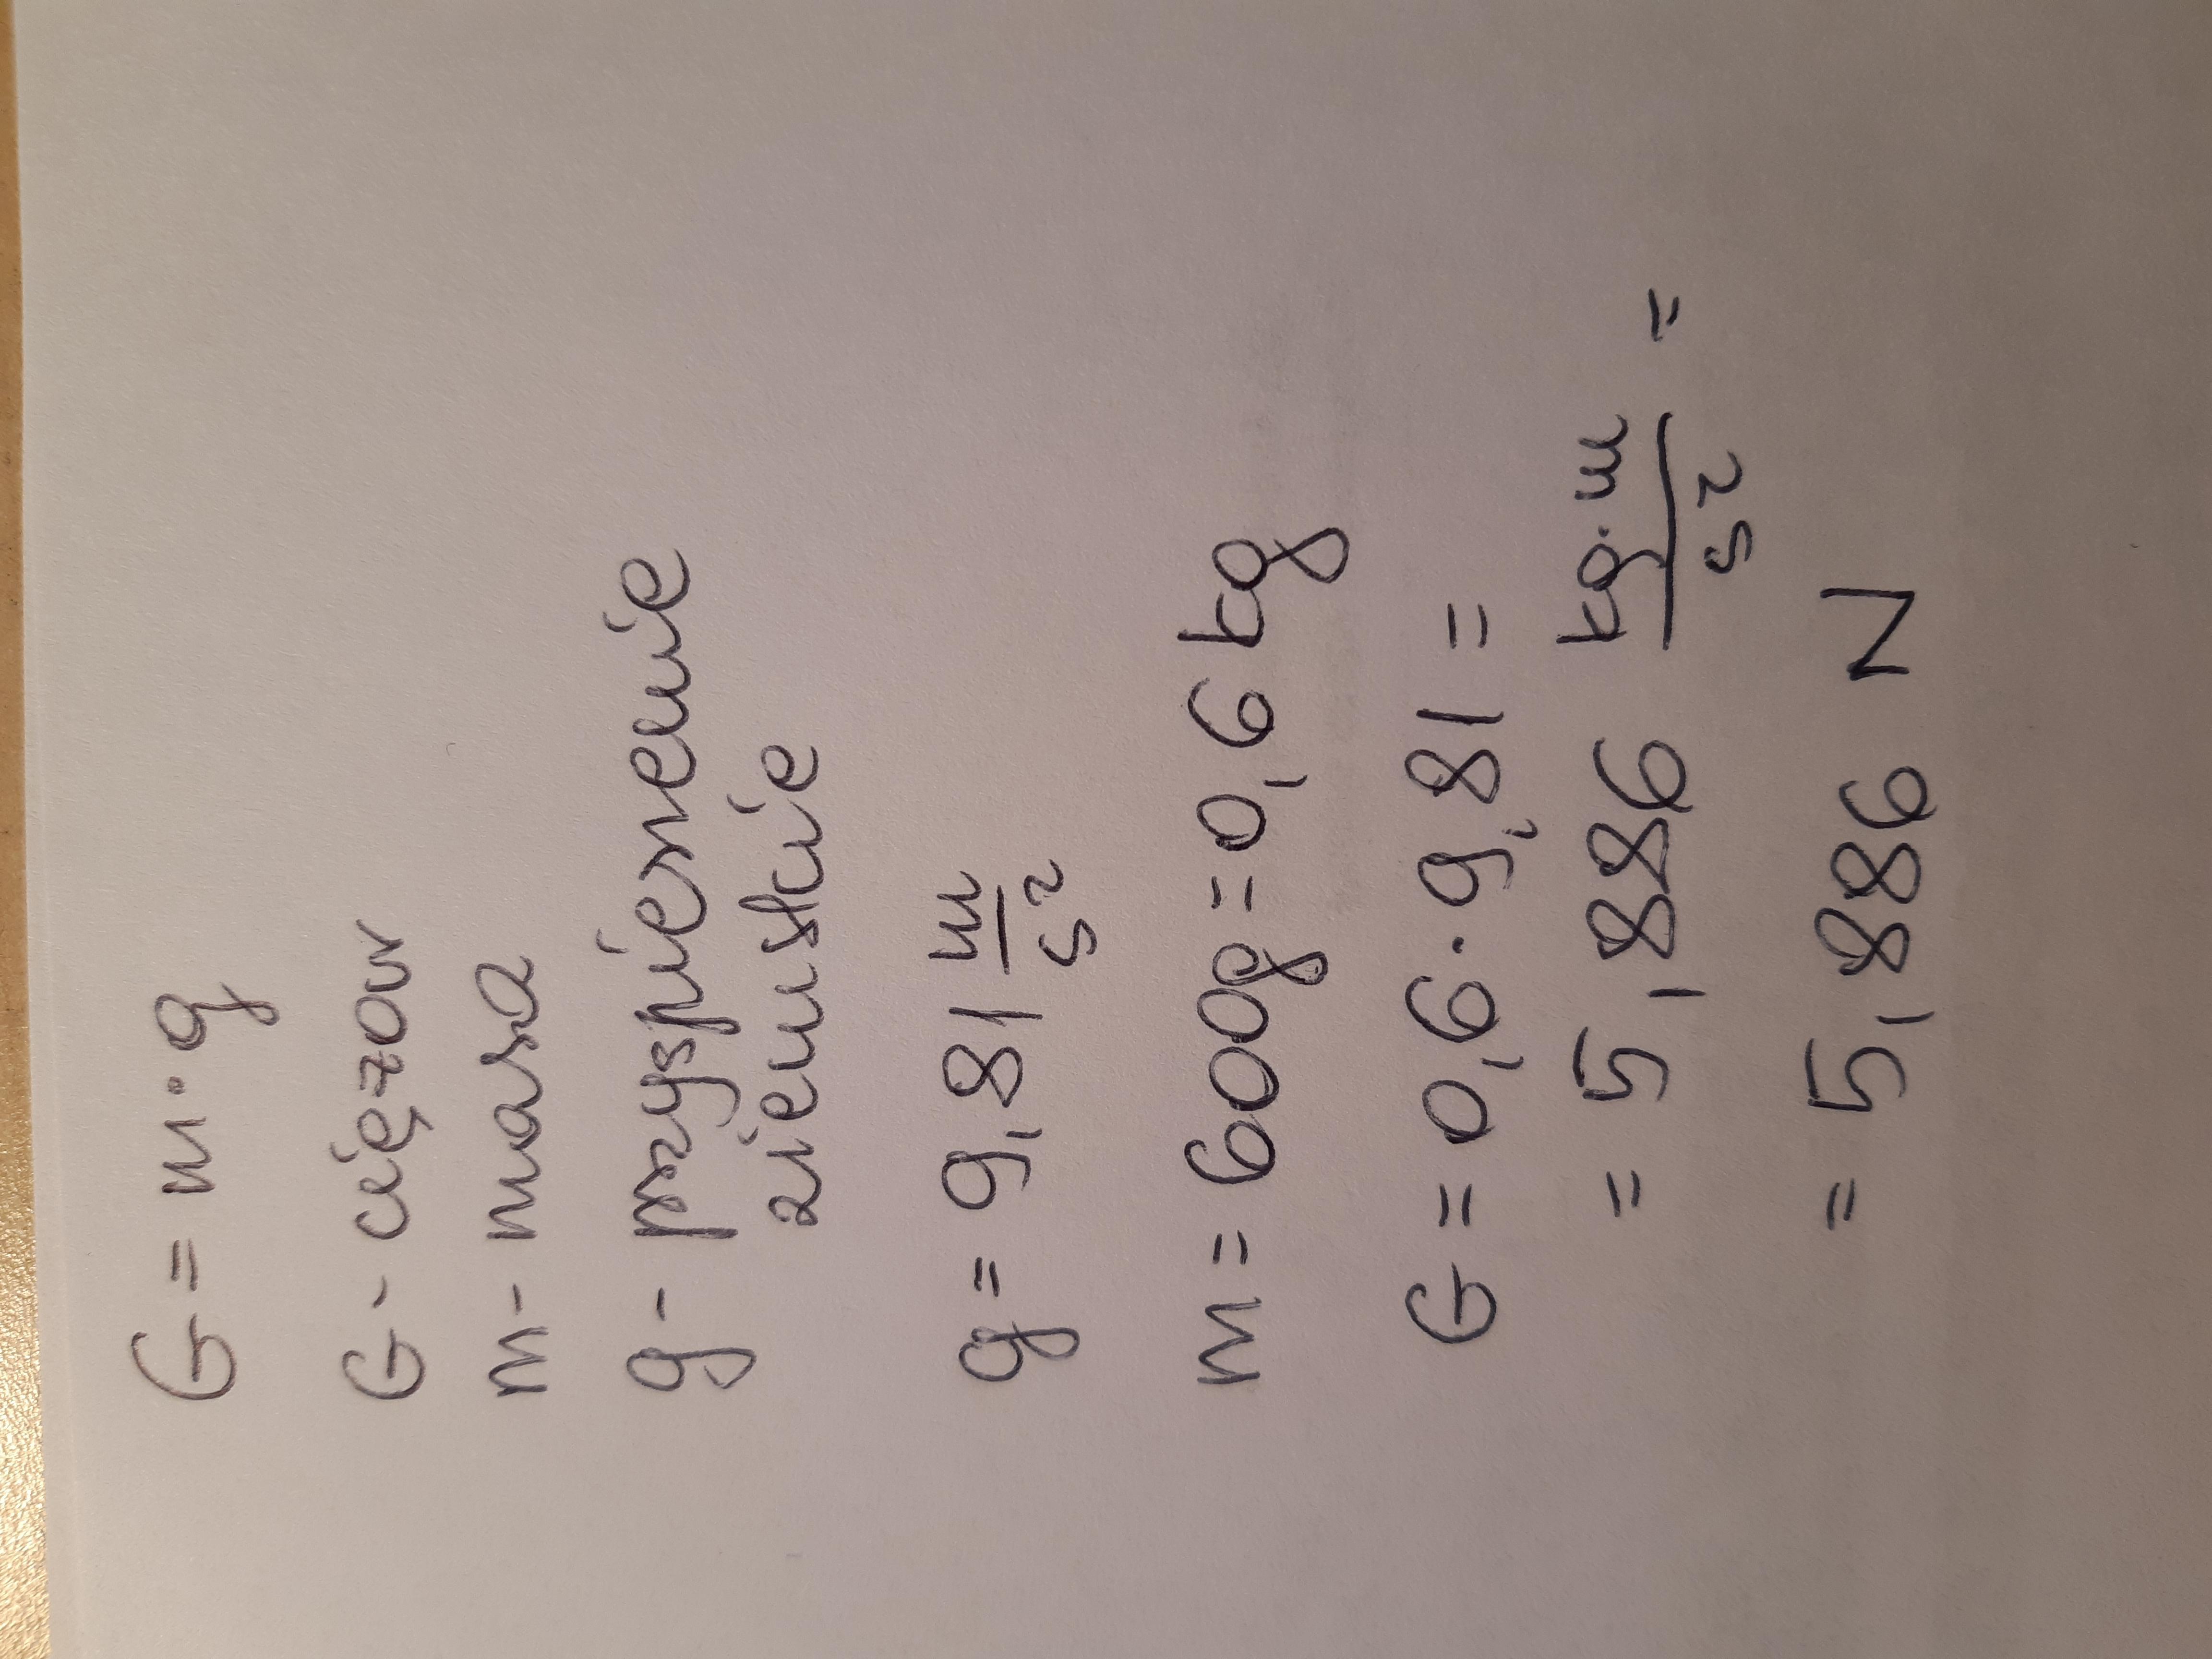 G = m · g
G - ciężar
m - masa
g - przyspieszenie
ziemskie
g = 9,81 m/s²
m = 600g = 0,6 kg
G = 0,6 · 9,81 =
= 5,886 kg·m/s² =
= 5,886 N